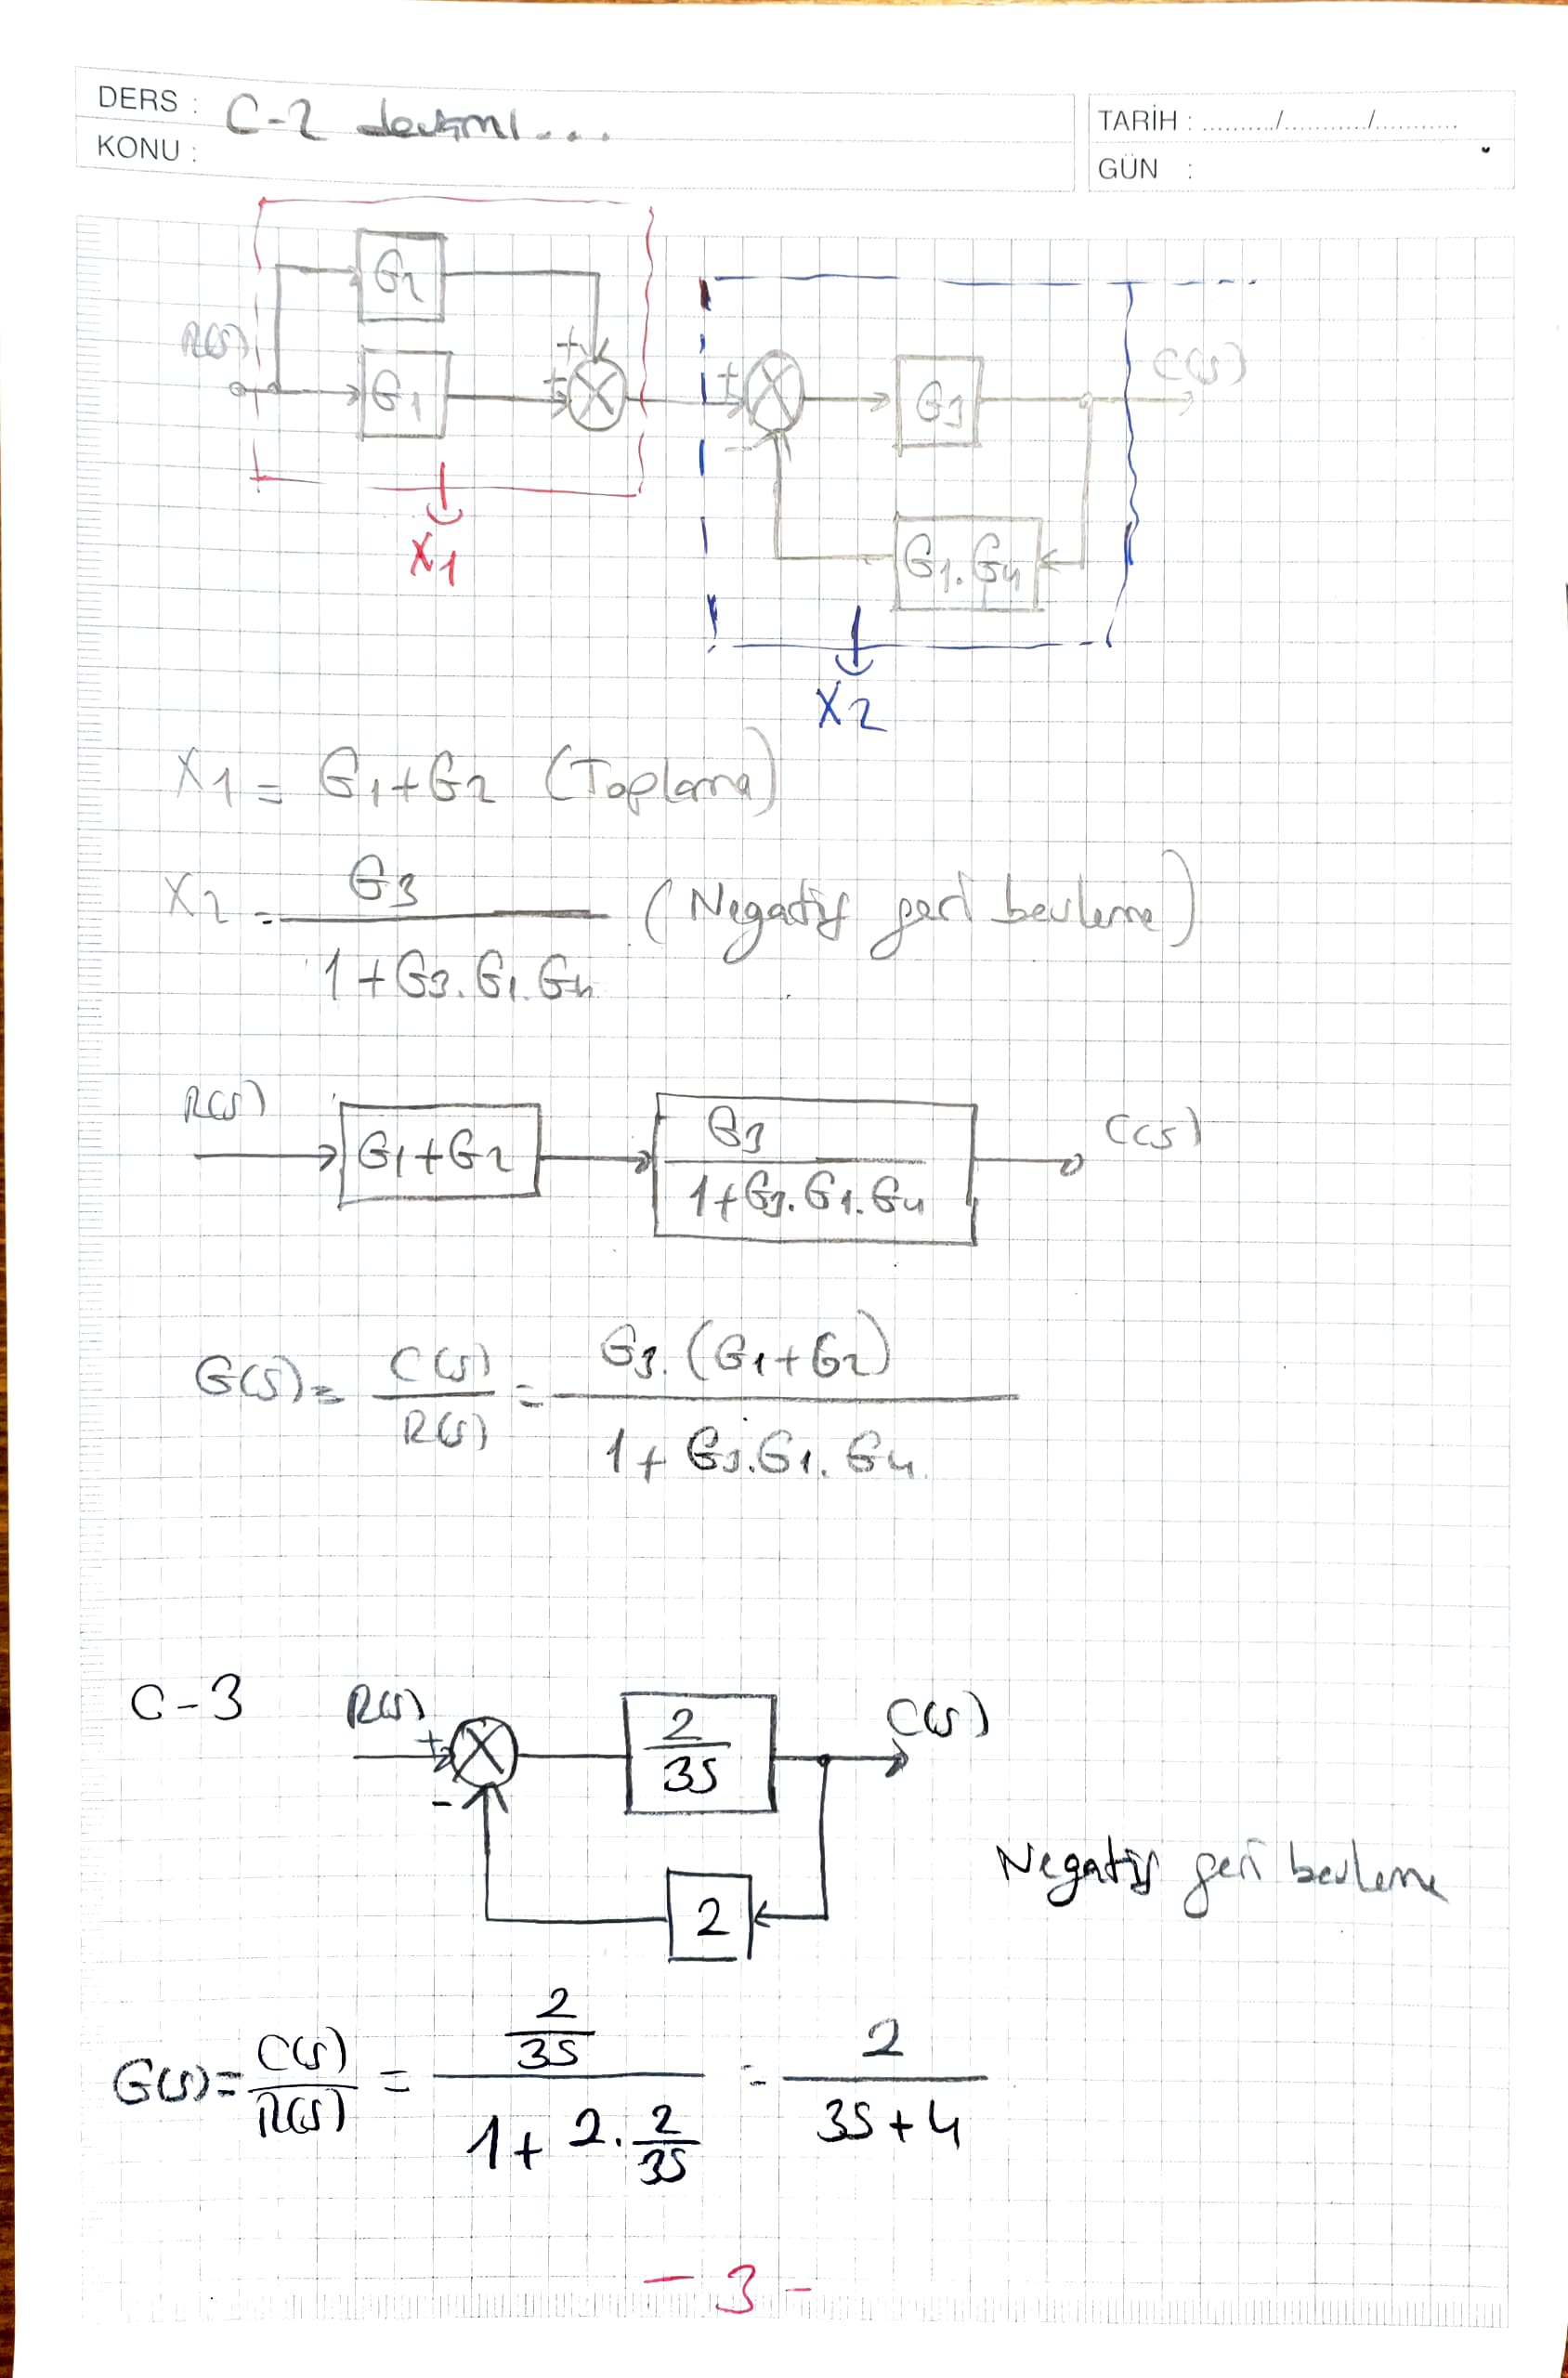 DERS : C-2 devamı...
KONU :
TARİH : ........../.........../...........
GÜN :
G2
R(s)
+
G1
+
X1
+
-
G3
C(s)
G1.G4
X2
X1 = G1+G2 (Toplama)
X2 = G3 / 1+G3.G1.G4 (Negatif geri besleme)
R(s)
G1+G2
G3 / 1+G3.G1.G4
C(s)
G(s) = C(s) / R(s) = G3.(G1+G2) / 1+G3.G1.G4
C-3
R(s)
+
-
2 / 3s
C(s)
2
Negatif geri besleme
G(s) = C(s) / R(s) = 2/3s / 1+2.2/3s = 2 / 3s+4
- 3 -